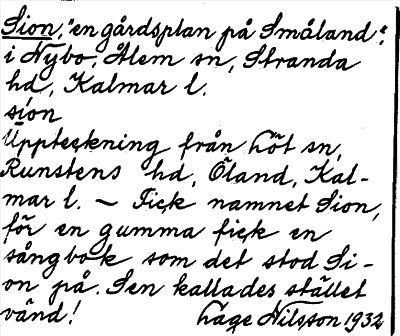 Sion, "en gårdsplan på Småland",
i Nybo, Ålem sn, Stranda
hd, Kalmar l.
sion
Uppteckning från Löt sn,
Runstens hd, Öland, Kal-
mar l. — Fick namnet Sion,
för en gumma fick en
sångbok som det stod Si-
on på. Sen kallades stället
vänd! Lage Nilsson 1932